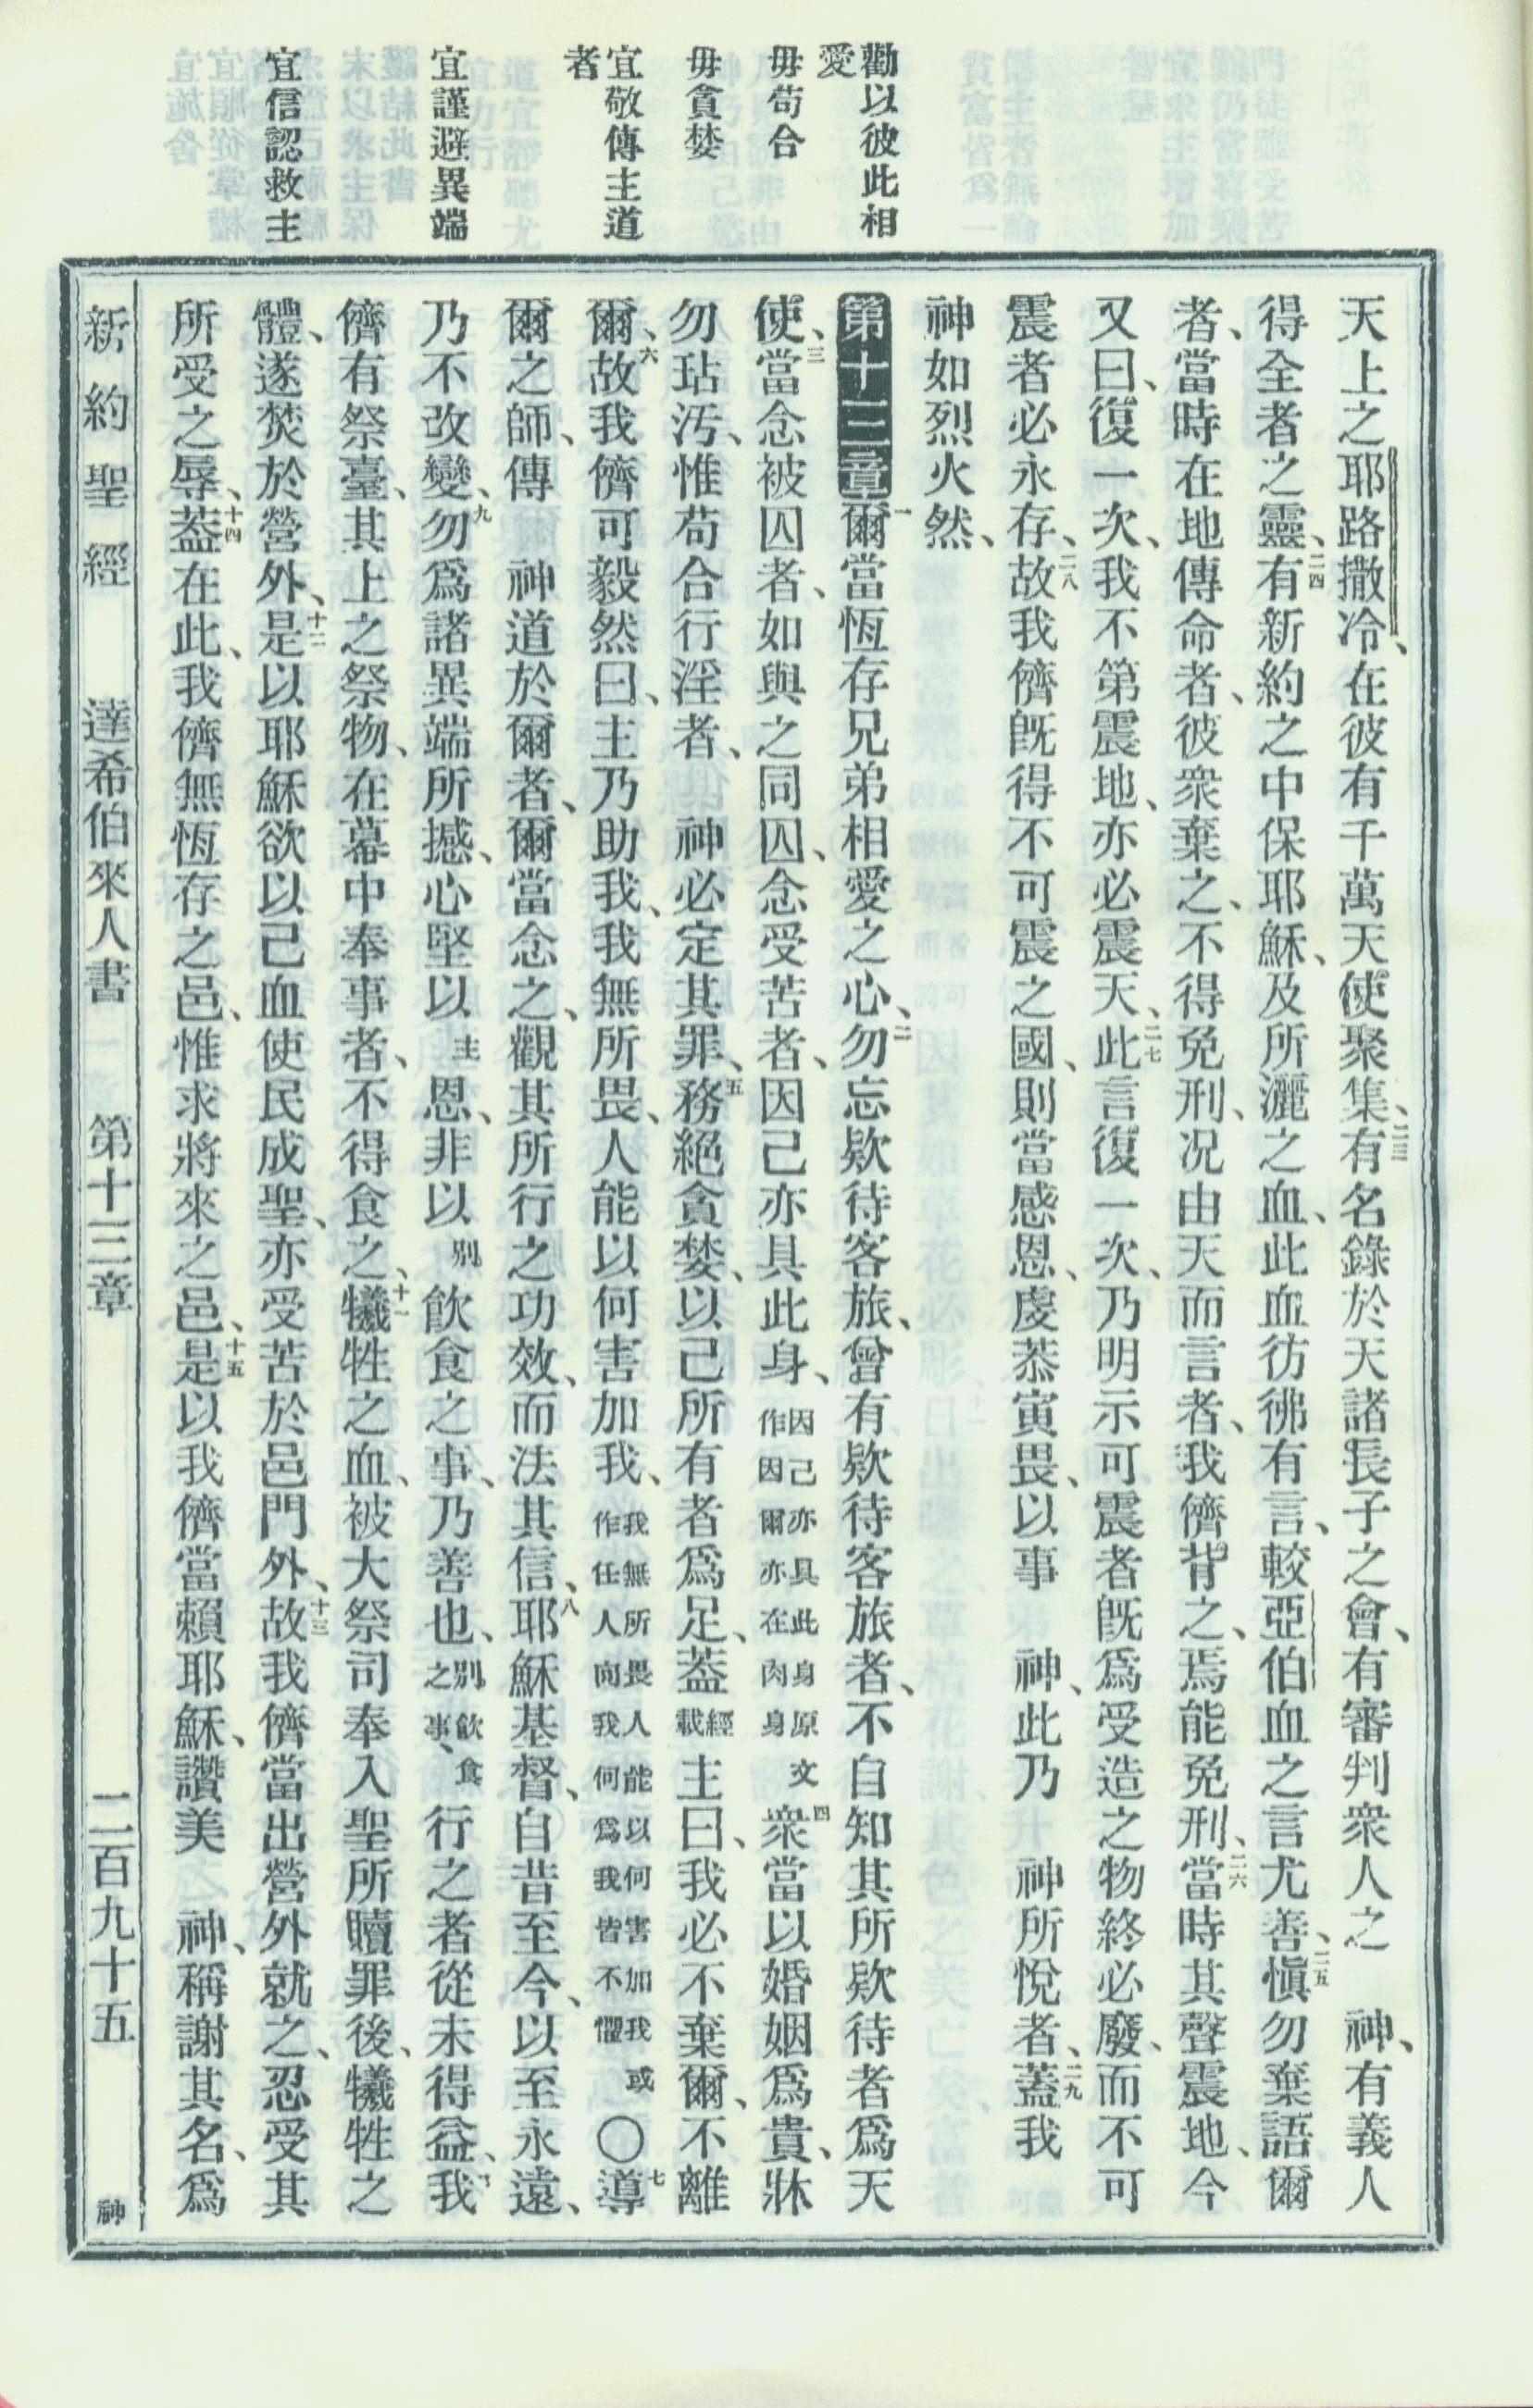 勸以彼此相
愛
毋苟合
毋貪婪
宜敬傳主道
者
宜謹避異端
宜信認救主
天上之耶路撒冷、在彼有千萬天使聚集、二三有名錄於天諸長子之會、有審判衆人之　神、有義人
得全者之靈、二四有新約之中保耶穌、及所灑之血、此血彷彿有言、較亞伯血之言尤善、二五愼勿棄語爾
者、當時在地傳命者、彼衆棄之、不得免刑、况由天而言者、我儕背之、焉能免刑、二六當時其聲震地、今
又曰、復一次、我不第震地、亦必震天、二七此言復一次、乃明示可震者旣爲受造之物終必廢、而不可
震者必永存、二八故我儕旣得不可震之國、則當感恩、虔恭寅畏、以事　神、此乃　神所悅者、二九蓋我
神如烈火然、
第十三章一爾當恆存兄弟相愛之心、二勿忘欵待客旅、曾有欵待客旅者、不自知其所欵待者爲天
使、三當念被囚者、如與之同囚、念受苦者、因己亦具此身、因己亦具此身原文作因爾亦在肉身四衆當以婚姻爲貴、牀
勿玷汚、惟苟合行淫者、　神必定其罪、五務絕貪婪、以己所有者爲足、蓋經載主曰、我必不棄爾、不離
爾、六故我儕可毅然曰、主乃助我、我無所畏、人能以何害加我、我無所畏人能以何害加我或作任人向我何爲我皆不懼〇七導
爾之師、傳　神道於爾者、爾當念之、觀其所行之功效、而法其信、八耶穌基督、自昔至今、以至永遠、
乃不改變、九勿爲諸異端所撼、心堅以主恩、非以別飲食之事、乃善也、別飲食之事、行之者從未得益、十我
儕有祭臺、其上之祭物、在幕中奉事者、不得食之、十一犧牲之血、被大祭司奉入聖所贖罪後、犧牲之
體、遂焚於營外、十二是以耶穌欲以己血使民成聖、亦受苦於邑門外、十三故我儕當出營外就之、忍受其
所受之辱、十四蓋在此、我儕無恆存之邑、惟求將來之邑、十五是以我儕當賴耶穌、讚美　神、稱謝其名、爲
新約聖經　達希伯來人書　第十三章　二百九十五　神